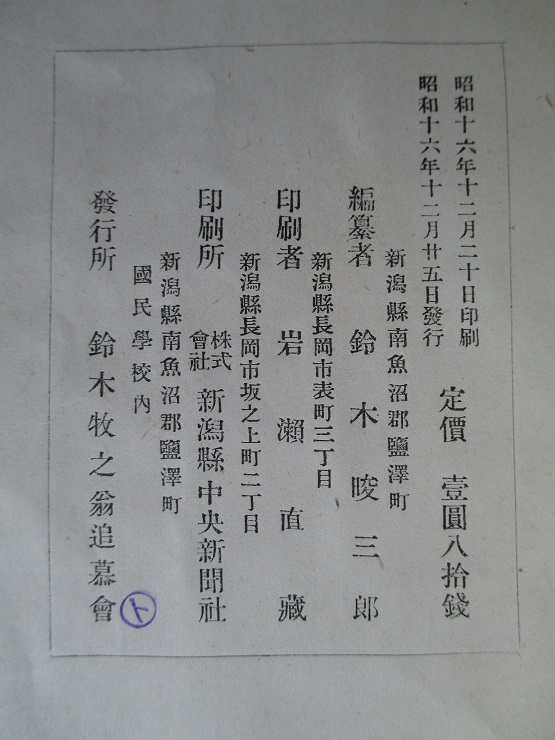 昭和十六年十二月二十日印刷
昭和十六年十二月廿五日發行
定價 壹圓八拾錢
新潟縣南魚沼郡鹽澤町
編纂者 鈴木晙三郎
新潟縣長岡市表町三丁目
印刷者 岩瀨直藏
新潟縣長岡市坂之上町二丁目
印刷所 株式會社 新潟縣中央新聞社
新潟縣南魚沼郡鹽澤町
國民學校内
發行所 鈴木牧之翁追慕會